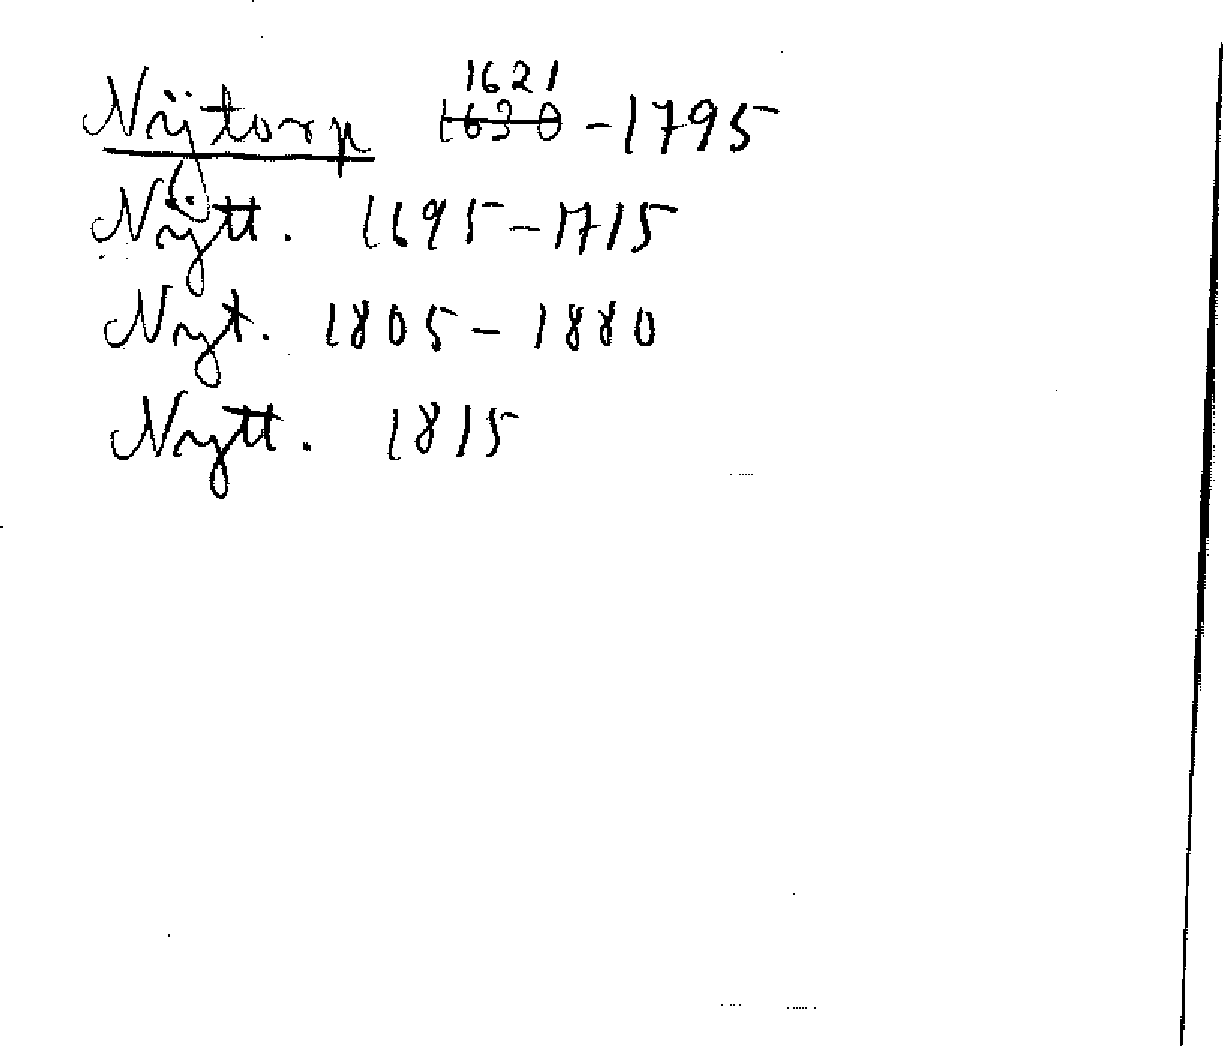 1621
Nÿtorp 1630 - 1795
Nÿtt. 1695 - 1715
Nyt. 1805 - 1880
Nytt. 1815